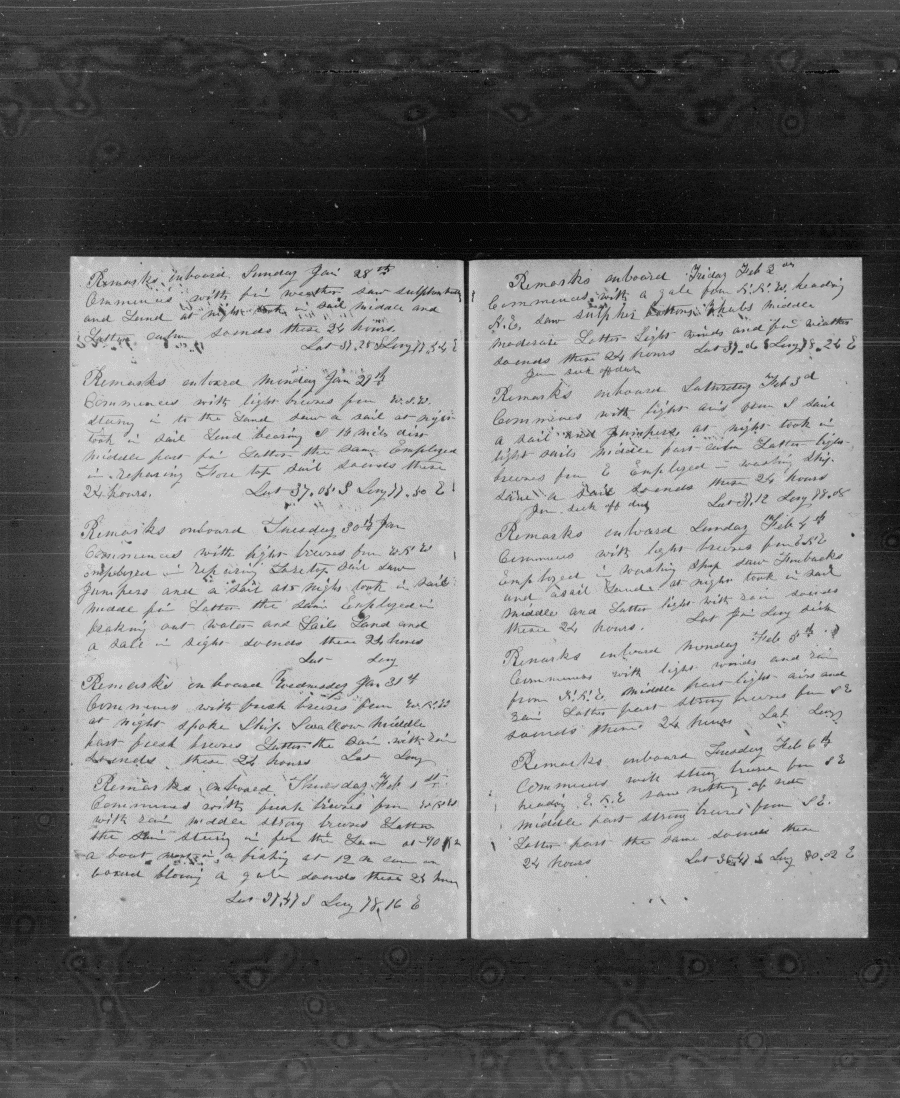 Remarks onboard Sunday Jan 28th
Commences with fin weather saw sulphurbottoms
and Land at night took in sail middle and
Latter calm So ends these 24 hours.
Lat 37.25 S Long 77.54 E
Remarks onboard Monday Jan 29th
Commences with light breeses from W.S.W.
stering in to the Land saw a sail at night
took in sail Land bearing S 16 miles dist
middle part fin Latter the same Employed
in repairing Fore top sail So ends these
24 hours. Lat 37.05 S Long 77.50 E
Remarks onboard Tuesday 30th Jan
Commences with light breeses from W.N.W
employed in repairing Foretop sail saw
Jumpers and a sail at night took in sail
middle fin Latter the same Employed in
braking out water and Sails Land and
a sail in sight So ends these 24 hours
Lat Long
Remarks onboard Wednesday Jan 31st
Commences with fresh breeses from W.N.W
at night spoke Ship Swallow middle
part fresh breeses Latter the same with rain
So ends these 24 hours Lat Long
Remarks onboard Thursday Feb 1st
Commences with fresh breeses from W.N.W.
with rain middle strong breeses Latter
the same stering in for the Land at
a boat went in a fishing at 12 n came on
board blowing a gale So ends these 24 hours
Lat 37.47 S Long 78.16 E
Remarks onboard Friday Feb 2nd
Commences with a gale from N.N.W. heading
N.E. saw sulpher bottoms Whales middle
moderate Latter Light winds and fin weather
So ends these 24 hours Lat 37.06 S Long 78.24 E
Jim sick off duty
Remarks onboard Saturday Feb 3d
Commences with light airs from S saw
a sail and Jumpers at night took in
light sails middle part calm Latter light
breeses from E Employed in washing ship.
saw a sail So ends these 24 hours
Jim sick off duty Lat 37.12 Long 78.08
Remarks onboard Sunday Feb 4th
Commences with light breeses from E.N.E
Employed in washing Ship saw Finbacks
and a sail Land at night took in sail
middle and Latter light with rain So ends
these 24 hours. Lat Jim Long sick
Remarks onboard Monday Feb 5th
Commences with light winds and rain
from N.N.E middle part light airs and
rain Latter part strong breeses from SE
So ends these 24 hours Lat Long
Remarks onboard Tuesday Feb 6th
Commences with strong breeses from SE
heading E.N.E saw nothing of note
middle part strong breeses from S.E.
Latter part the same So ends these
24 hours Lat 36.47 S Long 80.02 E